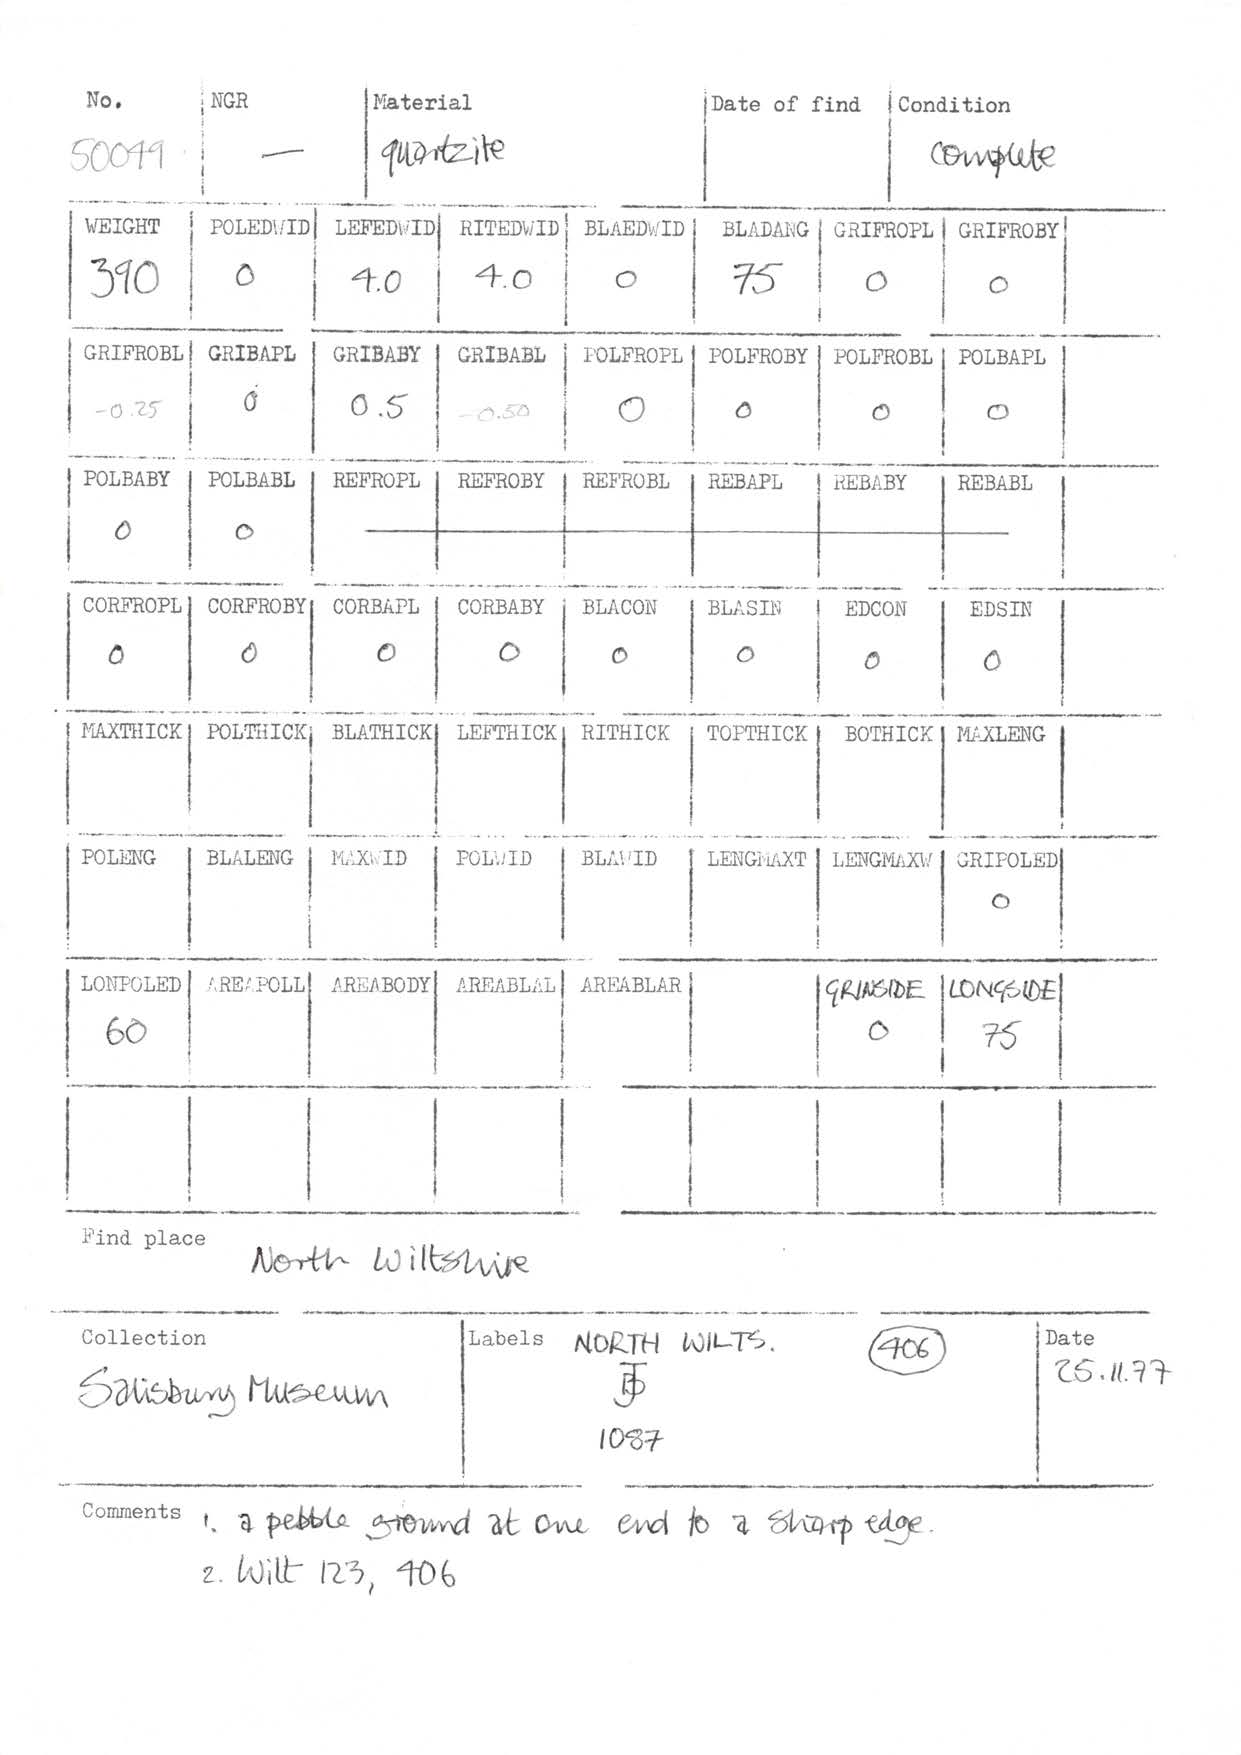 No. NGR Material Date of find Condition
50049 — quartzite complete
WEIGHT POLEDWID LEFEDWID RITEDWID BLAEDWID BLADANG GRIFROPL GRIFROBY
390 0 4.0 4.0 0 75 0 0
GRIFROBL GRIBAPL GRIBABY GRIBABL POLFROPL POLFROBY POLFROBL POLBAPL
-0.25 0 0.5 -0.50 0 0 0 0
POLBABY POLBABL REFROPL REFROBY REFROBL REBAPL REBABY REBABL
0 0
CORFROPL CORFROBY CORBAPL CORBABY BLACON BLASIN EDCON EDSIN
0 0 0 0 0 0 0 0
MAXTHICK POLTHICK BLATHICK LEFTHICK RITHICK TOPTHICK BOTHICK MAXLENG
POLENG BLALENG MAXWID POLWID BLAWID LENGMAXT LENGMAXW GRIPOLED
0
LONPOLED AREAPOLL AREABODY AREABLAL AREABLAR GRINSIDE LONGSIDE
60 0 75
Find place
North Wiltshire
Collection Labels NORTH WILTS. 406 Date
Salisbury Museum 25.11.77
1087
Comments 1. a pebble ground at one end to a sharp edge.
2. Wilt 123, 406